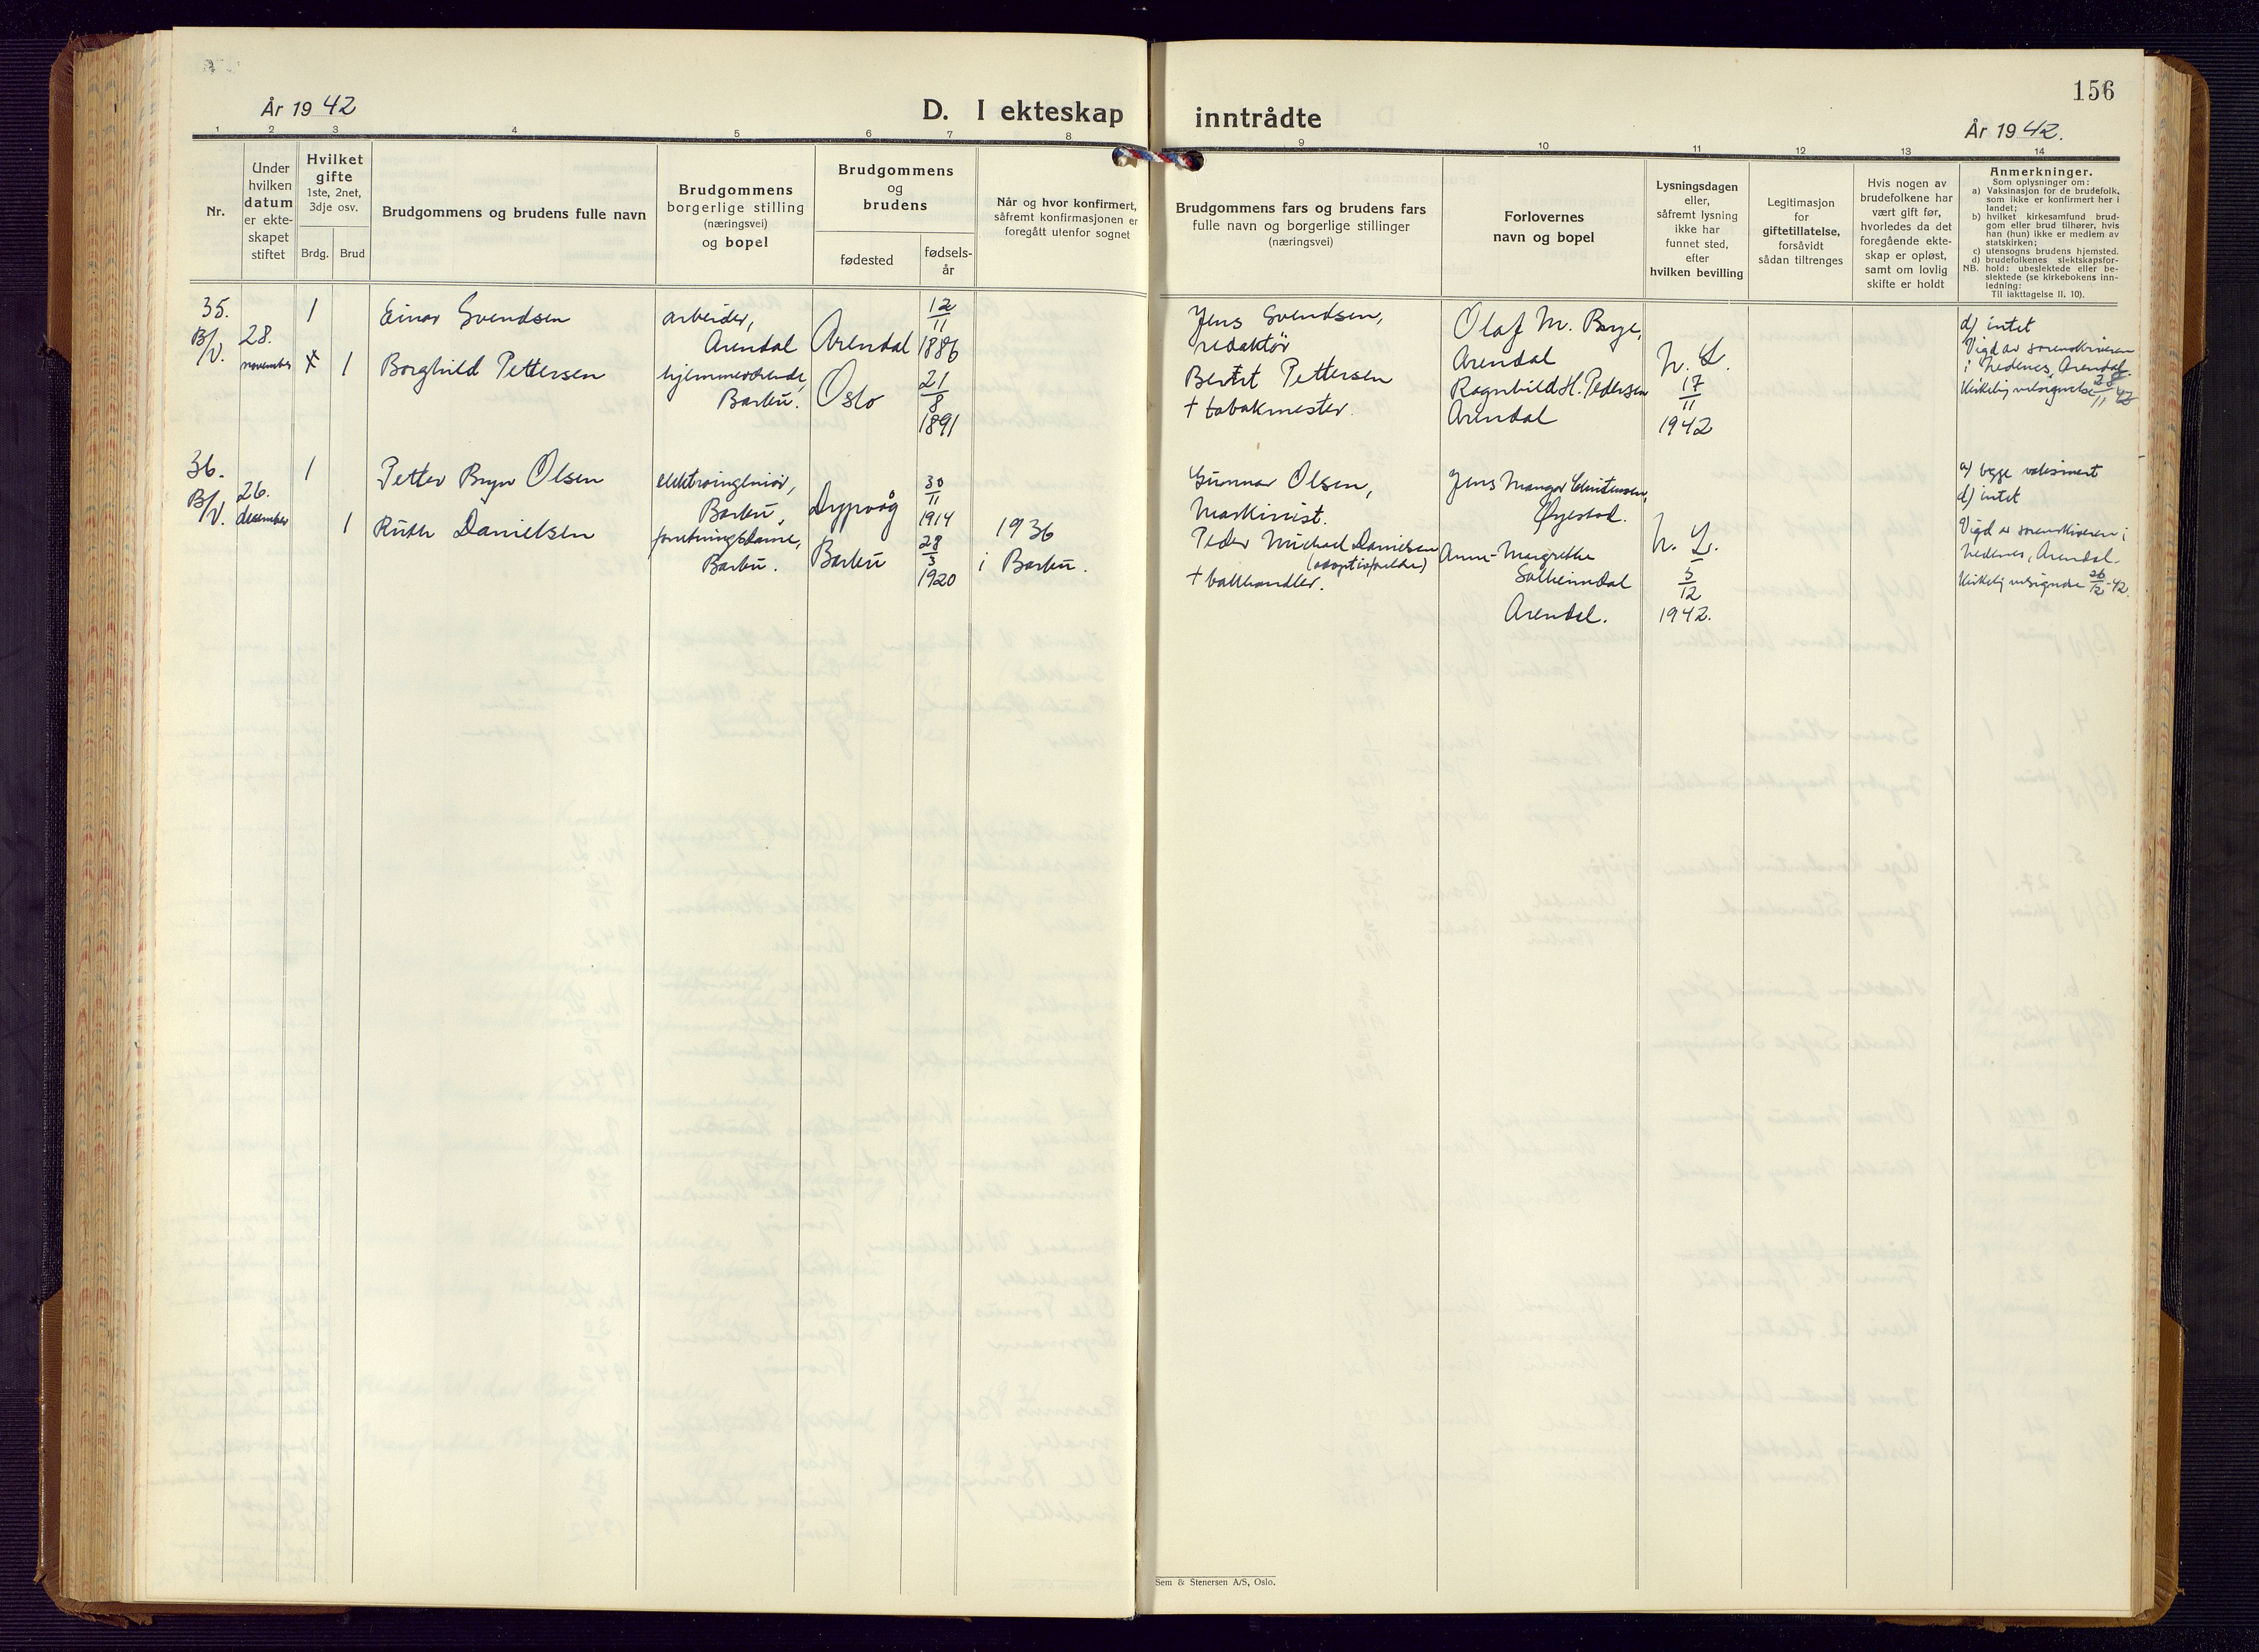 156
År 1942
D. I ekteskap inntrådte
År 1942.
1 2 3 4 5 6 7 8 9 10 11 12 13 14
Nr.
Under
hvilken
datum
er ekte-
skapet
stiftet
Hvilket
gifte
1ste, 2net,
3dje osv.
Brdg. Brud
Brudgommens og brudens fulle navn
Brudgommens
borgerlige stilling
(næringsvei)
og bopel
Brudgommens
og
brudens
fødested
fødsels-
år
Når og hvor konfirmert,
såfremt konfirmasjonen er
foregått utenfor sognet
Brudgommens fars og brudens fars
fulle navn og borgerlige stillinger
(næringsvei)
Forlovernes
navn og bopel
Lysningsdagen
eller,
såfremt lysning
ikke har
funnet sted,
efter
hvilken bevilling
Legitimasjon
for
giftetillatelse,
forsåvidt
sådan tiltrenges
Hvis nogen av
brudefolkene har
vært gift før,
hvorledes da det
foregående ekte-
skap er opløst,
samt om lovlig
skifte er holdt
Anmerkninger.
Som oplysninger om:
a) Vaksinasjon for de brudefolk,
som ikke er konfirmert her i
landet;
b) hvilket kirkesamfund brud-
gom eller brud tilhører, hvis
han (hun) ikke er medlem av
statskirken;
c) utensogns brudens hjemsted.
d) brudefolkenes slektskapsfor-
NB. hold: ubeslektede eller be-
slektede (se kirkebokens inn-
ledning:
Til iakttagelse II. 10).
35.
B/V.
28.
november
1
x 1
Einar Svendsen
Borghild Pettersen
arbeider,
Arendal
hjemmeværende,
Barbu.
Arendal
Oslo
12/11
1886
21/8
1891
Jens Svendsen,
redaktør
Bernt Pettersen
+ tobakmester.
Olaf M. Berge,
Arendal
Ragnhild H. Pedersen
Arendal
N. L.
17/11
1942
d) intet
Vigd av sorenskriveren
i Nedenes, Arendal.
Kirkelig velsignelse 28/11 42
36.
B/V.
26.
desember
1
1
Petter Bryn Olsen
Ruth Danielsen
elektroingeniør,
Barbu,
forretningsdame,
Barbu.
Dypvåg
Barbu
30/11
1914
28/3
1920
1936
i Barbu.
Gunnar Olsen,
Maskinist.
Peder Michael Danielsen
(adoptivforeldre)
+ kullhandler.
Jens Mangor Christensen,
Øyestad.
Anne-Margrethe
Solheimdal
Arendal.
N. L.
5/12
1942.
a) begge vaksinert
d) intet
Vigd av sorenskriveren i
Nedenes, Arendal.
Kirkelig velsignelse 26/12-42.
Sem & Stenersen A/S, Oslo.